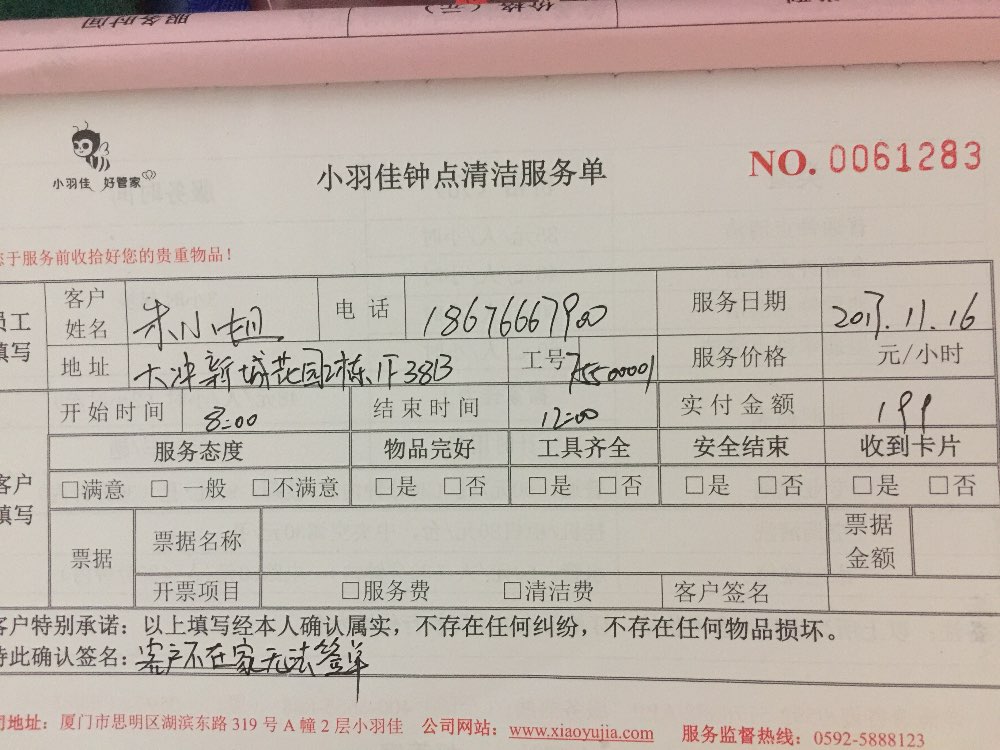 服务时间 价格（元）
小羽佳 好管家
小羽佳钟点清洁服务单
NO. 0061283
于服务前收拾好您的贵重物品！
员工填写
客户姓名 朱小姐 电话 18676667900 服务日期 2017.11.16
地址 大冲新城花园2栋1F38B 工号 75500001 服务价格 元/小时
开始时间 8:00 结束时间 12:00 实付金额 199
客户填写
服务态度 物品完好 工具齐全 安全结束 收到卡片
□满意 □一般 □不满意 □是 □否 □是 □否 □是 □否 □是 □否
票据 票据名称 票据金额
开票项目 □服务费 □清洁费 客户签名
客户特别承诺：以上填写经本人确认属实，不存在任何纠纷，不存在任何物品损坏。
特此确认签名：客户不在家无法签单
地址：厦门市思明区湖滨东路319号A幢2层小羽佳 公司网站：www.xiaoyujia.com 服务监督热线：0592-5888123